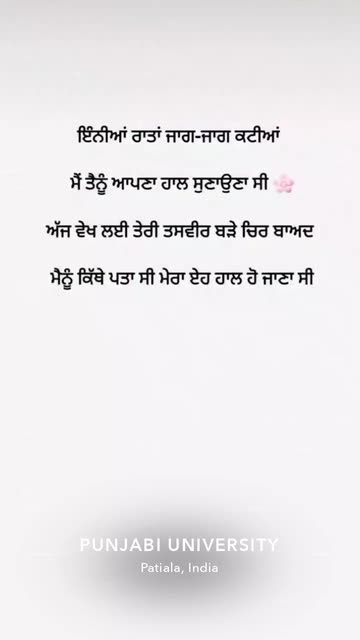 ਇੰਨੀਆਂ ਰਾਤਾਂ ਜਾਗ-ਜਾਗ ਕਟੀਆਂ
ਮੈਂ ਤੈਨੂੰ ਆਪਣਾ ਹਾਲ ਸੁਣਾਉਣਾ ਸੀ 🌸
ਅੱਜ ਵੇਖ ਲਈ ਤੇਰੀ ਤਸਵੀਰ ਬੜੇ ਚਿਰ ਬਾਅਦ
ਮੈਨੂੰ ਕਿੱਥੇ ਪਤਾ ਸੀ ਮੇਰਾ ਏਹ ਹਾਲ ਹੋ ਜਾਣਾ ਸੀ
PUNJABI UNIVERSITY
Patiala, India